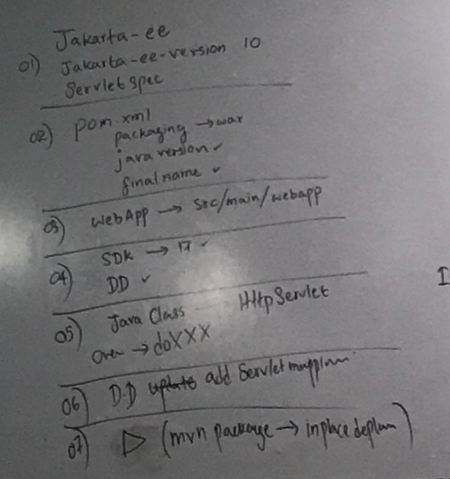 Jakarta-ee
01) Jakarta-ee-version 10
Servlet spec
02) pom.xml
packaging → war
java version ✓
final name ✓
03) WebApp → src/main/webapp
04) SDK → 17 ✓
DD ✓
05) Java Class HttpServlet
Over → doXXX
06) D.D update add Servlet
07) ▷ (mvn package → inplace
I